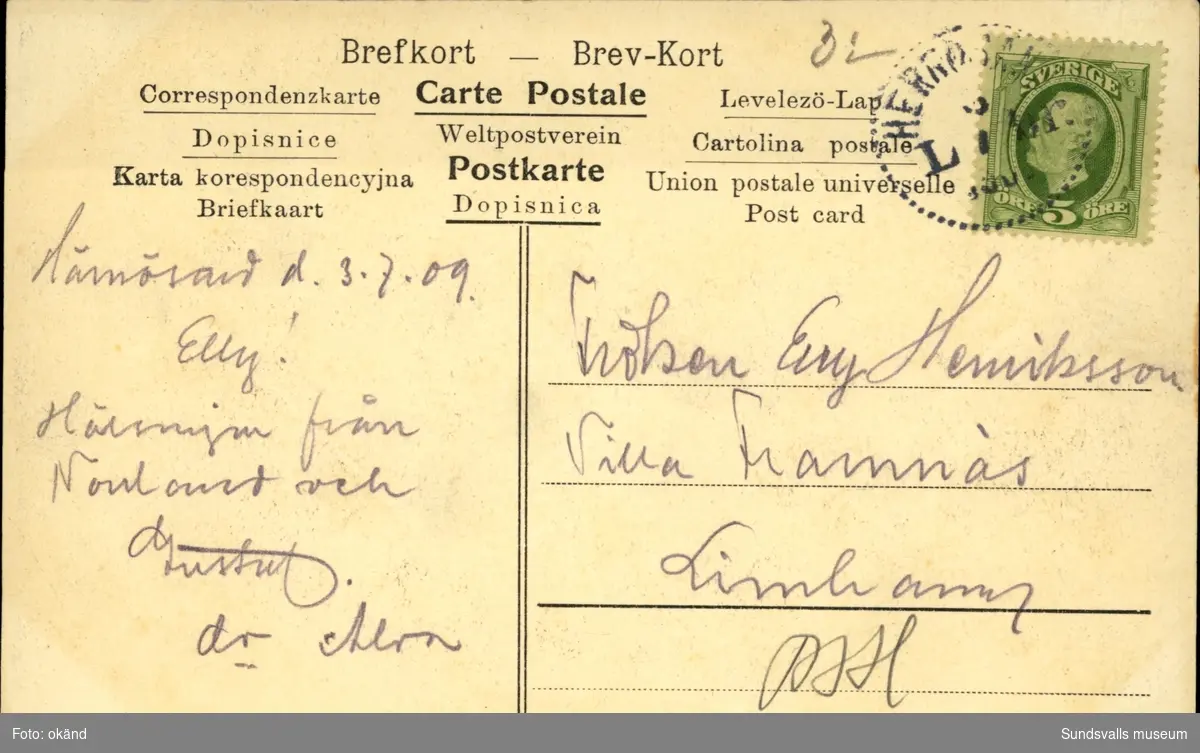 Brefkort — Brev-Kort
32
Correspondenzkarte Carte Postale Levelezö-Lap
Dopisnice Weltpostverein Cartolina postale
Karta korespondencyjna Postkarte Union postale universelle
Briefkaart Dopisnica Post card
HERNÖSAN
L
SVERIGE
ÖRE 5 ÖRE
Härnösand d. 3.7.09.
Elly!
Hälsningar från
Norrland och
Gustaf.
Fröken Elly Henriksson
Villa Framnäs
Limhamn
Foto: okänd
Sundsvalls museum